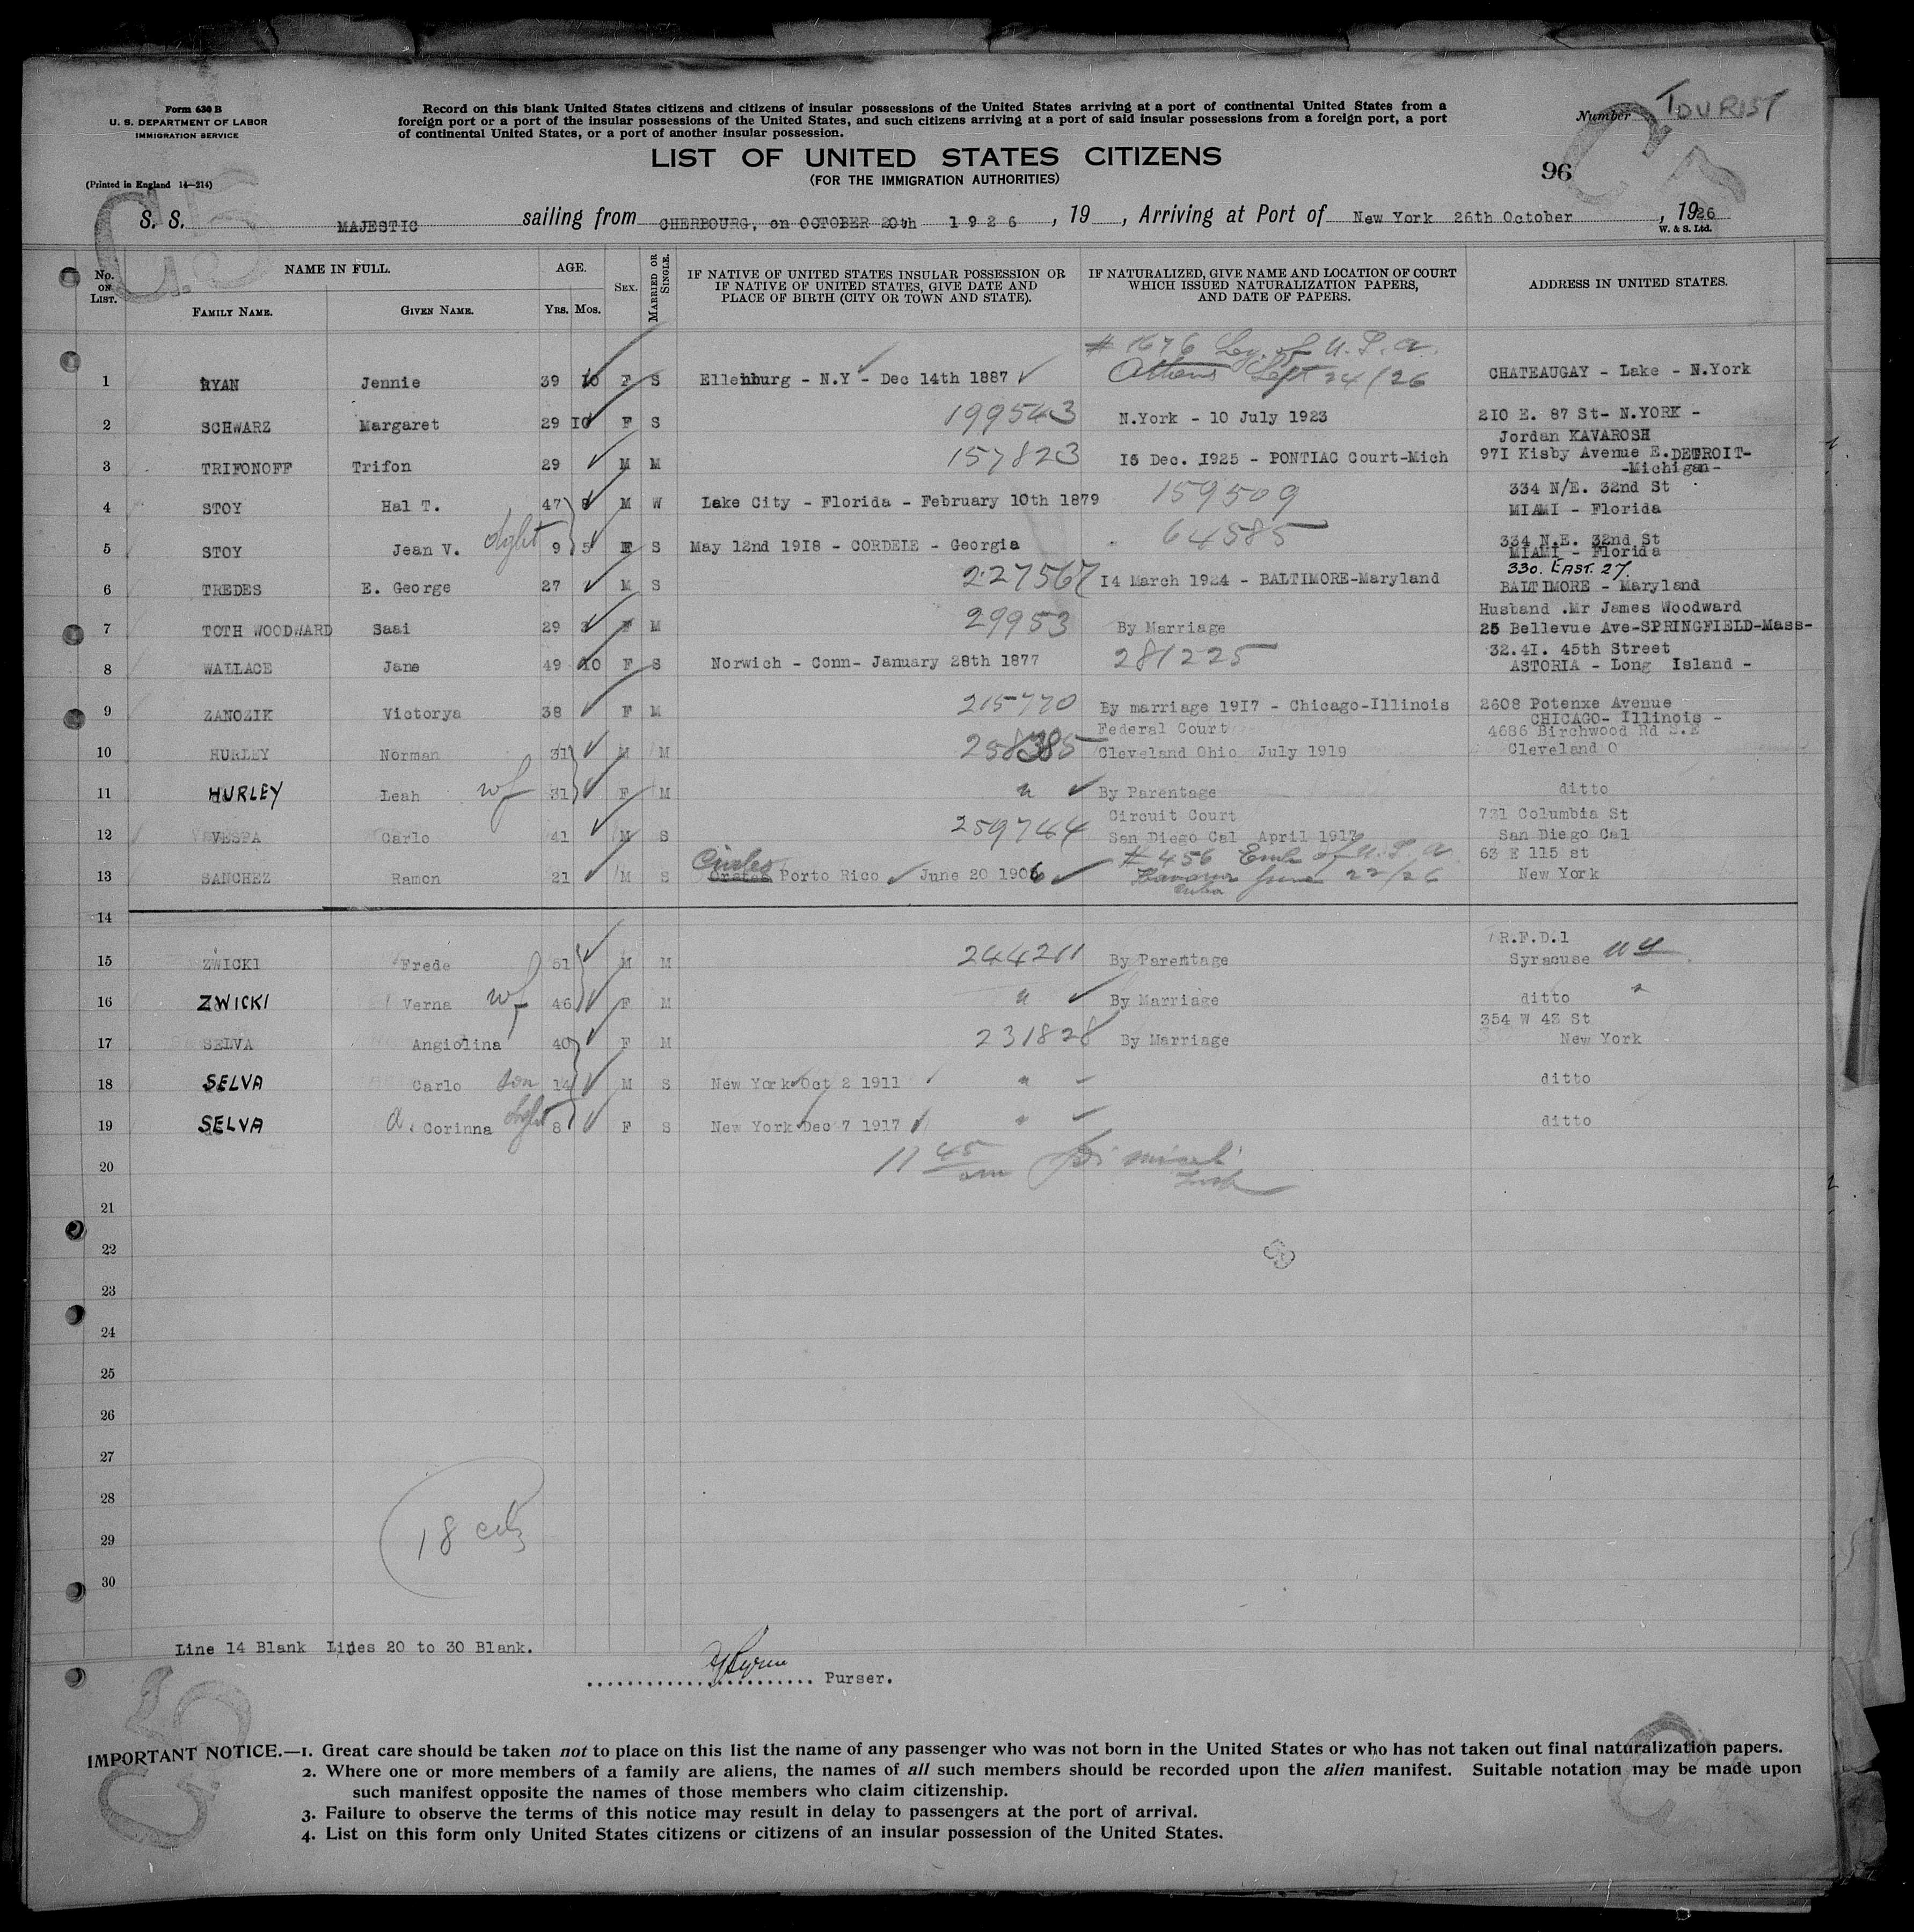 Form 630 B
U. S. DEPARTMENT OF LABOR
IMMIGRATION SERVICE
(Printed in England 14—214)
Record on this blank United States citizens and citizens of insular possessions of the United States arriving at a port of continental United States from a
foreign port or a port of the insular possessions of the United States, and such citizens arriving at a port of said insular possessions from a foreign port, a port
of continental United States, or a port of another insular possession.
Number TOURIST
LIST OF UNITED STATES CITIZENS
(FOR THE IMMIGRATION AUTHORITIES)
96
S. S. MAJESTIC sailing from CHERBOURG, on OCTOBER 20th 1926, 19 , Arriving at Port of New York 26th October, 1926
W. & S. Ltd.
No. ON LIST. NAME IN FULL. FAMILY NAME. GIVEN NAME. AGE. YRS. MOS. SEX. MARRIED OR SINGLE.
IF NATIVE OF UNITED STATES INSULAR POSSESSION OR IF NATIVE OF UNITED STATES, GIVE DATE AND PLACE OF BIRTH (CITY OR TOWN AND STATE).
IF NATURALIZED, GIVE NAME AND LOCATION OF COURT WHICH ISSUED NATURALIZATION PAPERS, AND DATE OF PAPERS.
ADDRESS IN UNITED STATES.
# 1676 Leg. of U. S. A.
1 RYAN Jennie 39 10 F S Ellenburg - N.Y - Dec 14th 1887 Athens Sept 24/26 CHATEAUGAY - Lake - N.York
2 SCHWARZ Margaret 29 10 F S 199543 N.York - 10 July 1923 210 E. 87 St- N.YORK -
Jordan KAVAROSH
3 TRIFONOFF Trifon 29 M M 157823 15 Dec. 1925 - PONTIAC Court-Mich 971 Kisby Avenue E.DETROIT-
-Michigan-
4 STOY Hal T. 47 8 M W Lake City - Florida - February 10th 1879 159509 334 N/E. 32nd St
MIAMI - Florida
5 STOY Jean V. dght 9 5 F S May 12nd 1918 - CORDELE - Georgia 64585 334 N.E. 32nd St
MIAMI - Florida
330. EAST. 27.
6 TREDES E. George 27 M S 227567 14 March 1924 - BALTIMORE-Maryland BALTIMORE - Maryland
Husband .Mr James Woodward
7 TOTH WOODWARD Saai 29 3 F M 29953 By Marriage 25 Bellevue Ave-SPRINGFIELD-Mass-
32.41. 45th Street
8 WALLACE Jane 49 10 F S Norwich - Conn- January 28th 1877 281225 ASTORIA - Long Island -
9 ZANOZIK Victorya 38 F M 215770 By marriage 1917 - Chicago-Illinois 2608 Potenxe Avenue
CHICAGO- Illinois -
Federal Court 4686 Birchwood Rd S.E
10 HURLEY Norman 31 M M 258385 Cleveland Ohio July 1919 Cleveland O
11 HURLEY Leah wf 31 F M " By Parentage ditto
Circuit Court 731 Columbia St
12 VESPA Carlo 41 M S 259744 San Diego Cal April 1917 San Diego Cal
# 456 Emb of U. S. A 63 E 115 st
13 SANCHEZ Ramon 21 M S Ciales Porto Rico June 20 1906 Havana June 22/26 New York
Cuba
14
R.F.D.1
15 ZWICKI Frede 51 M M 244211 By Parentage Syracuse NY
16 ZWICKI Verna wf 46 F M " By Marriage ditto "
354 W 43 St
17 SELVA Angiolina 40 F M 231828 By Marriage New York
18 SELVA Carlo son 14 M S New York Oct 2 1911 " ditto
19 SELVA a. Corinna dght 8 F S New York Dec 7 1917 " ditto
20 11 45 am
21
22
23
24
25
26
27
28
29
18
30
Line 14 Blank Lines 20 to 30 Blank.
Purser.
IMPORTANT NOTICE.—1. Great care should be taken not to place on this list the name of any passenger who was not born in the United States or who has not taken out final naturalization papers.
2. Where one or more members of a family are aliens, the names of all such members should be recorded upon the alien manifest. Suitable notation may be made upon
such manifest opposite the names of those members who claim citizenship.
3. Failure to observe the terms of this notice may result in delay to passengers at the port of arrival.
4. List on this form only United States citizens or citizens of an insular possession of the United States.